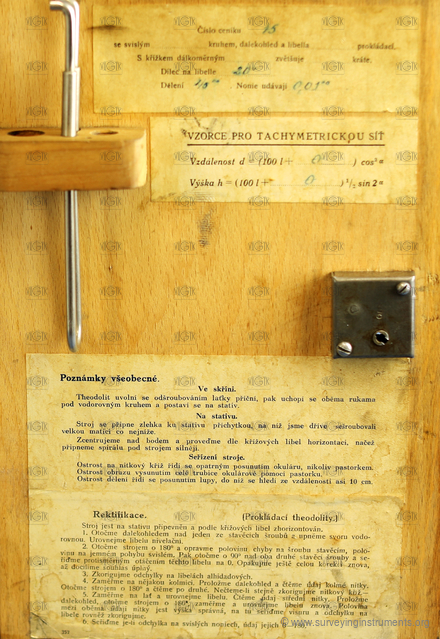 Číslo ceníku 15
se svislým kruhem, dalekohled a libella prokládací.
S křížkem dálkoměrným zvětšuje kráte.
Dílec na libelle 20"
Dělení Nonie udávají 0,05
VZORCE PRO TACHYMETRICKOU SÍŤ
Vzdálenost d = (100 l + 0 ) cos² α
Výška h = (100 l + 0 ) ¹/₂ sin 2 α
Poznámky všeobecné.
Ve skříni.
Theodolit uvolní se odšroubováním laťky příční, pak uchopí se oběma rukama
pod vodorovným kruhem a postaví se na stativ.
Na stativu.
Stroj se připne zlehka ku stativu příchytkou, na níž jsme dříve sešroubovali
velkou matici co nejníže.
Zcentrujeme nad bodem a provedme dle křížových libel horizontaci, načež
připneme spirálu pod strojem silněji.
Seřízení stroje.
Ostrost na nitkový kříž řídí se opatrným posunutím okuláru, nikoliv pastorkem.
Ostrost obrazu vysunutím celé trubice okulárové pomocí pastorku.
Ostrost dělení řídí se posunutím lupy, do níž se hledí ze vzdálenosti asi 10 cm.
Rektifikace. (Prokládací theodolity.)
Stroj jest na stativu připevněn a podle křížových libel zhorizontován.
1. Otočme dalekohledem nad jeden ze stavěcích šroubů a upněme svoru vodo-
rovnou. Urovnejme libelu nivelační.
2. Otočme strojem o 180° a opravme polovinu chyby na šroubu stavěcím, polo-
vinu na jemných pohybu svislém. Pak otočme o 90° nad oba druhé stavěcí šrouby a se-
řiďme protisměrným otáčením těchto libelu na 0. Opakujme ještě celou korekci znova,
až docílíme souhlas úplný.
3. Zkorigujme odchylky na libelách alhidádových.
4. Zaměřme na nějakou kolmici. Proložme dalekohled a čtěme údaj kolmé nitky.
Otočme strojem o 180° a čtěme po druhé.
6. Seřídme je-li odchylka na svislých nonijích, údaj jejich
www.surveyinginstruments.org